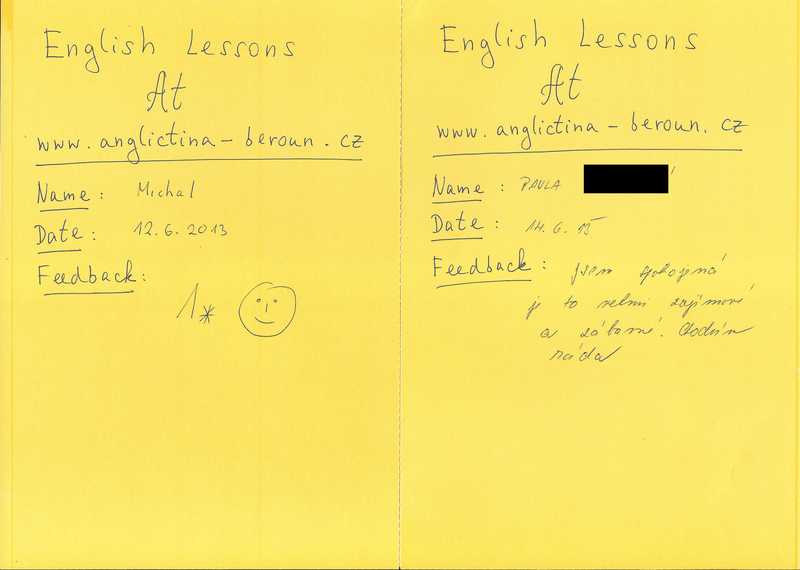 English Lessons
At
www.anglictina-beroun.cz
Name: Michal
Date: 12.6.2013
Feedback:
1*
English Lessons
At
www.anglictina-beroun.cz
Name: PAVLA
Date: 14.6.15
Feedback: jsem spokojená
je to velmi zajímavé
a zábavné. Chodím
ráda